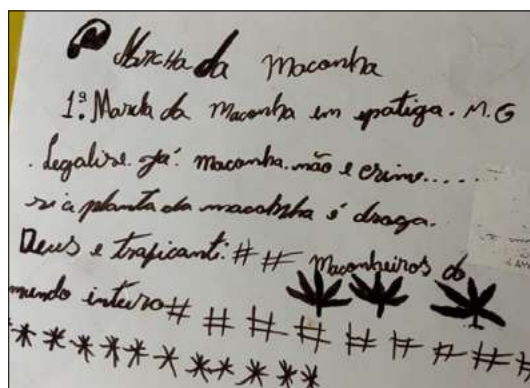 Marcha da maconha
1ª. Marcha da maconha em ipatiga. M.G
. Legalise. já! maconha. não e crime.....
si a planta da maconha é droga.
Deus e traficanti: # # maconheiros do
mundo inteiro # # # # # # # # #
* * * * * * * * * * *